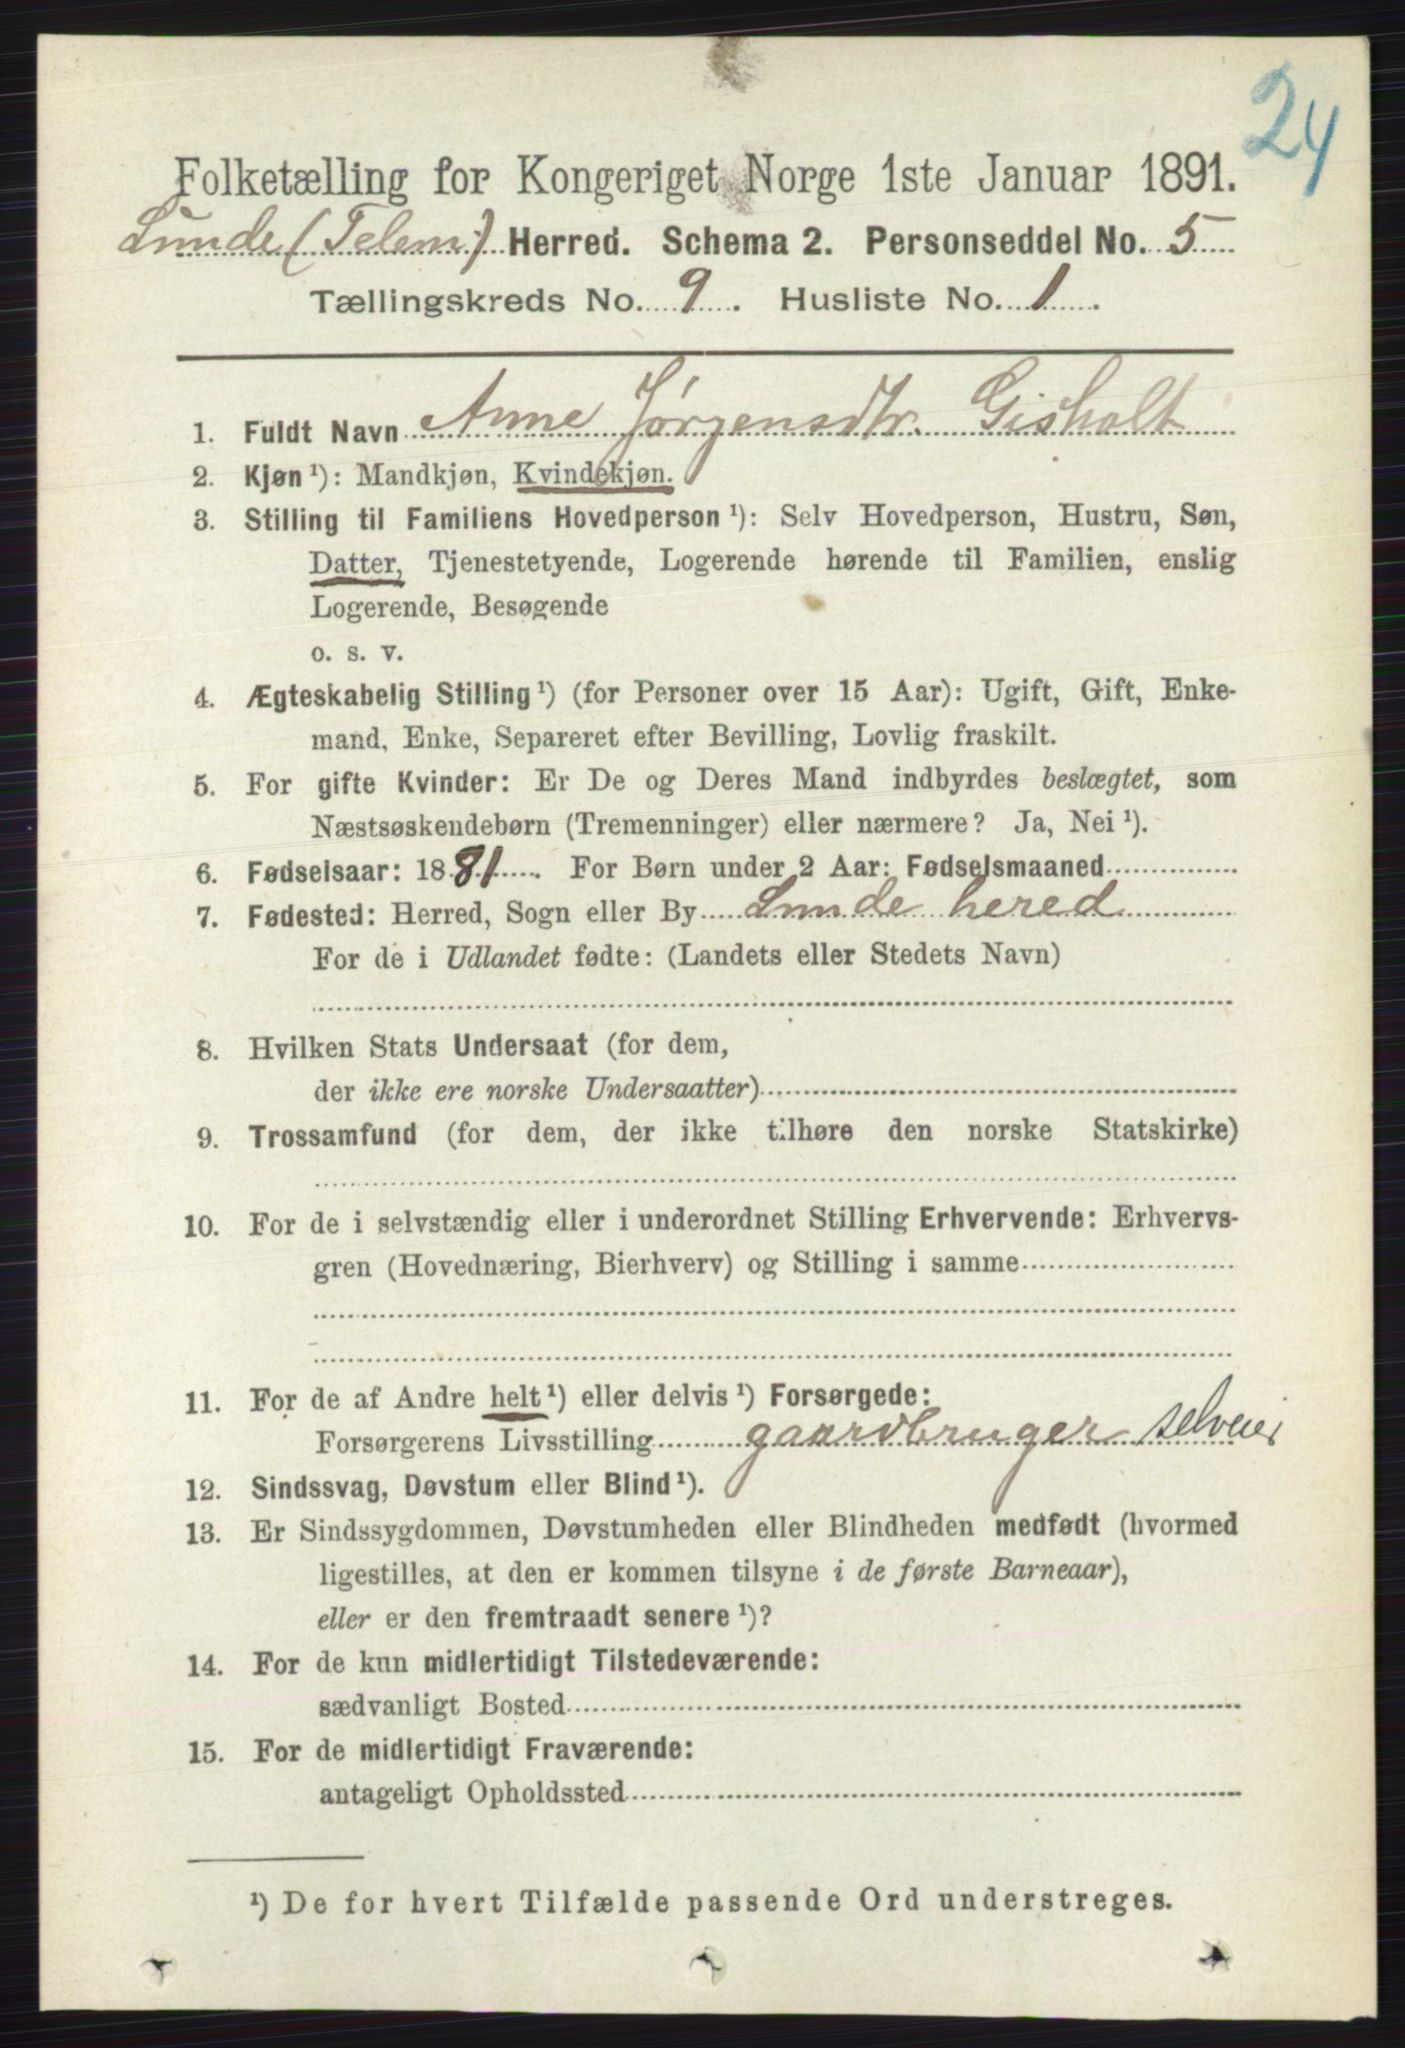 24
Folketælling for Kongeriget Norge 1ste Januar 1891.
Lunde (Telem:) Herred. Schema 2. Personseddel No. 5
Tællingskreds No. 9. Husliste No. 1.
1. Fuldt Navn Anne Jørgensdtr. Gisholt
2. Kjøn ¹): Mandkjøn, Kvindekjøn.
3. Stilling til Familiens Hovedperson ¹): Selv Hovedperson, Hustru, Søn,
Datter, Tjenestetyende, Logerende hørende til Familien, enslig
Logerende, Besøgende
o. s. v.
4. Ægteskabelig Stilling ¹) (for Personer over 15 Aar): Ugift, Gift, Enke-
mand, Enke, Separeret efter Bevilling, Lovlig fraskilt.
5. For gifte Kvinder: Er De og Deres Mand indbyrdes beslægtet, som
Næstsøskendebørn (Tremenninger) eller nærmere? Ja, Nei ¹).
6. Fødselsaar: 1881. For Børn under 2 Aar: Fødselsmaaned
7. Fødested: Herred, Sogn eller By Lunde hered
For de i Udlandet fødte: (Landets eller Stedets Navn)
8. Hvilken Stats Undersaat (for dem,
der ikke ere norske Undersaatter)
9. Trossamfund (for dem, der ikke tilhøre den norske Statskirke)
10. For de i selvstændig eller i underordnet Stilling Erhvervende: Erhvervs-
gren (Hovednæring, Bierhverv) og Stilling i samme
11. For de af Andre helt ¹) eller delvis ¹) Forsørgede:
Forsørgerens Livsstilling gaardbruger selveier
12. Sindssvag, Døvstum eller Blind ¹).
13. Er Sindssygdommen, Døvstumheden eller Blindheden medfødt (hvormed
ligestilles, at den er kommen tilsyne i de første Barneaar),
eller er den fremtraadt senere ¹)?
14. For de kun midlertidigt Tilstedeværende:
sædvanligt Bosted
15. For de midlertidigt Fraværende:
antageligt Opholdssted
¹) De for hvert Tilfælde passende Ord understreges.